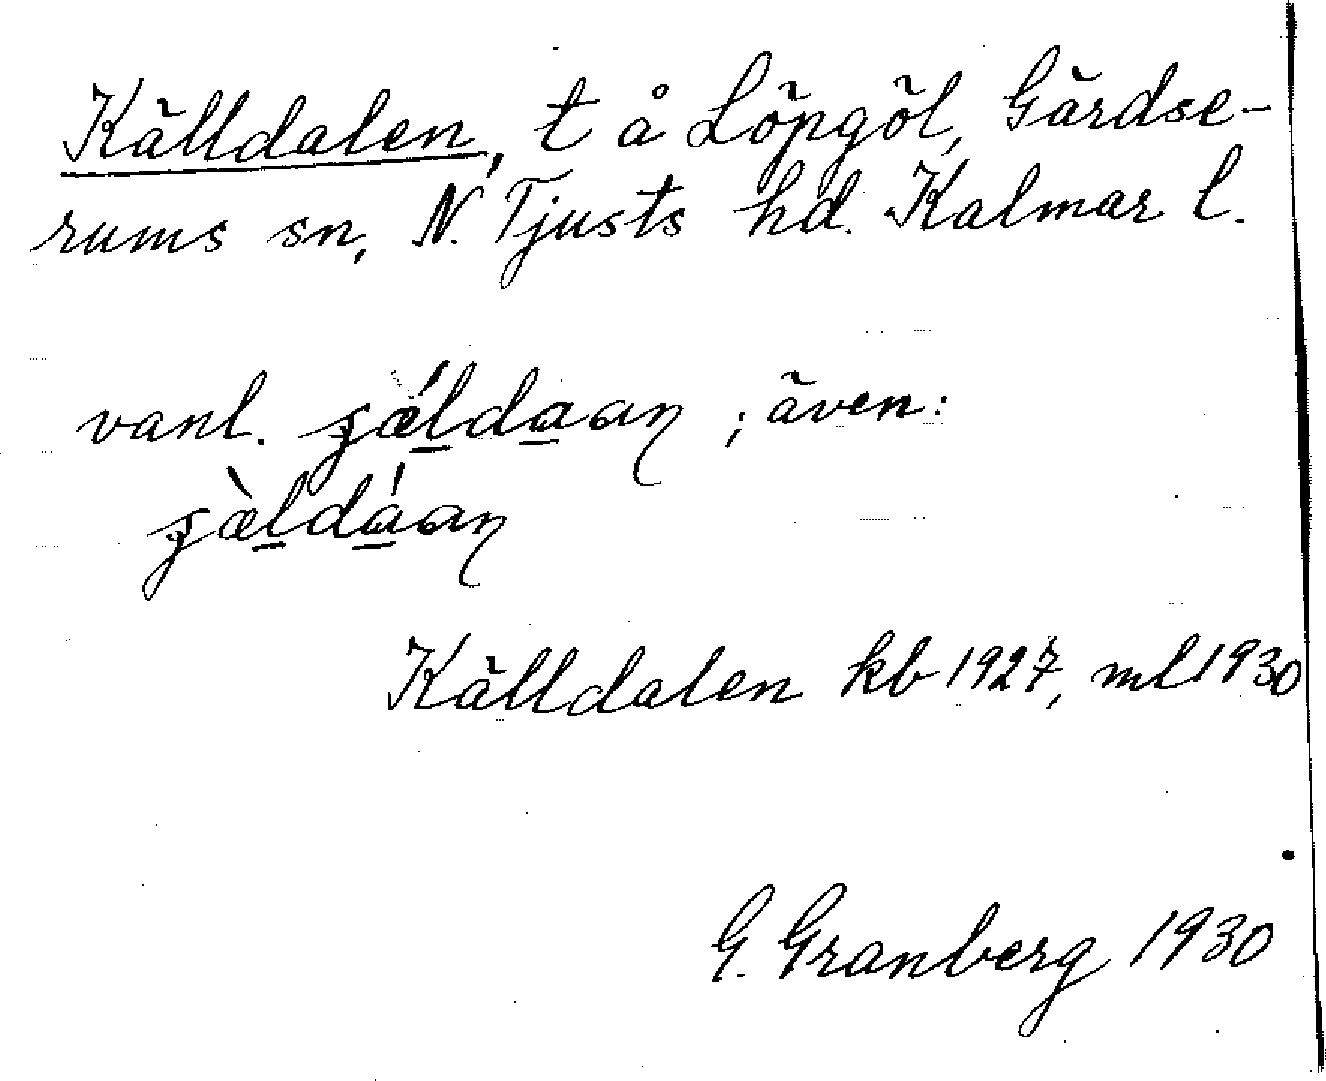 Källdalen, t å Löpgöl, Gärdse-
rums sn, N. Tjusts hd. Kalmar l.
vanl. ; även:
Källdalen kb 1927, ml 1930
G. Granberg 1930